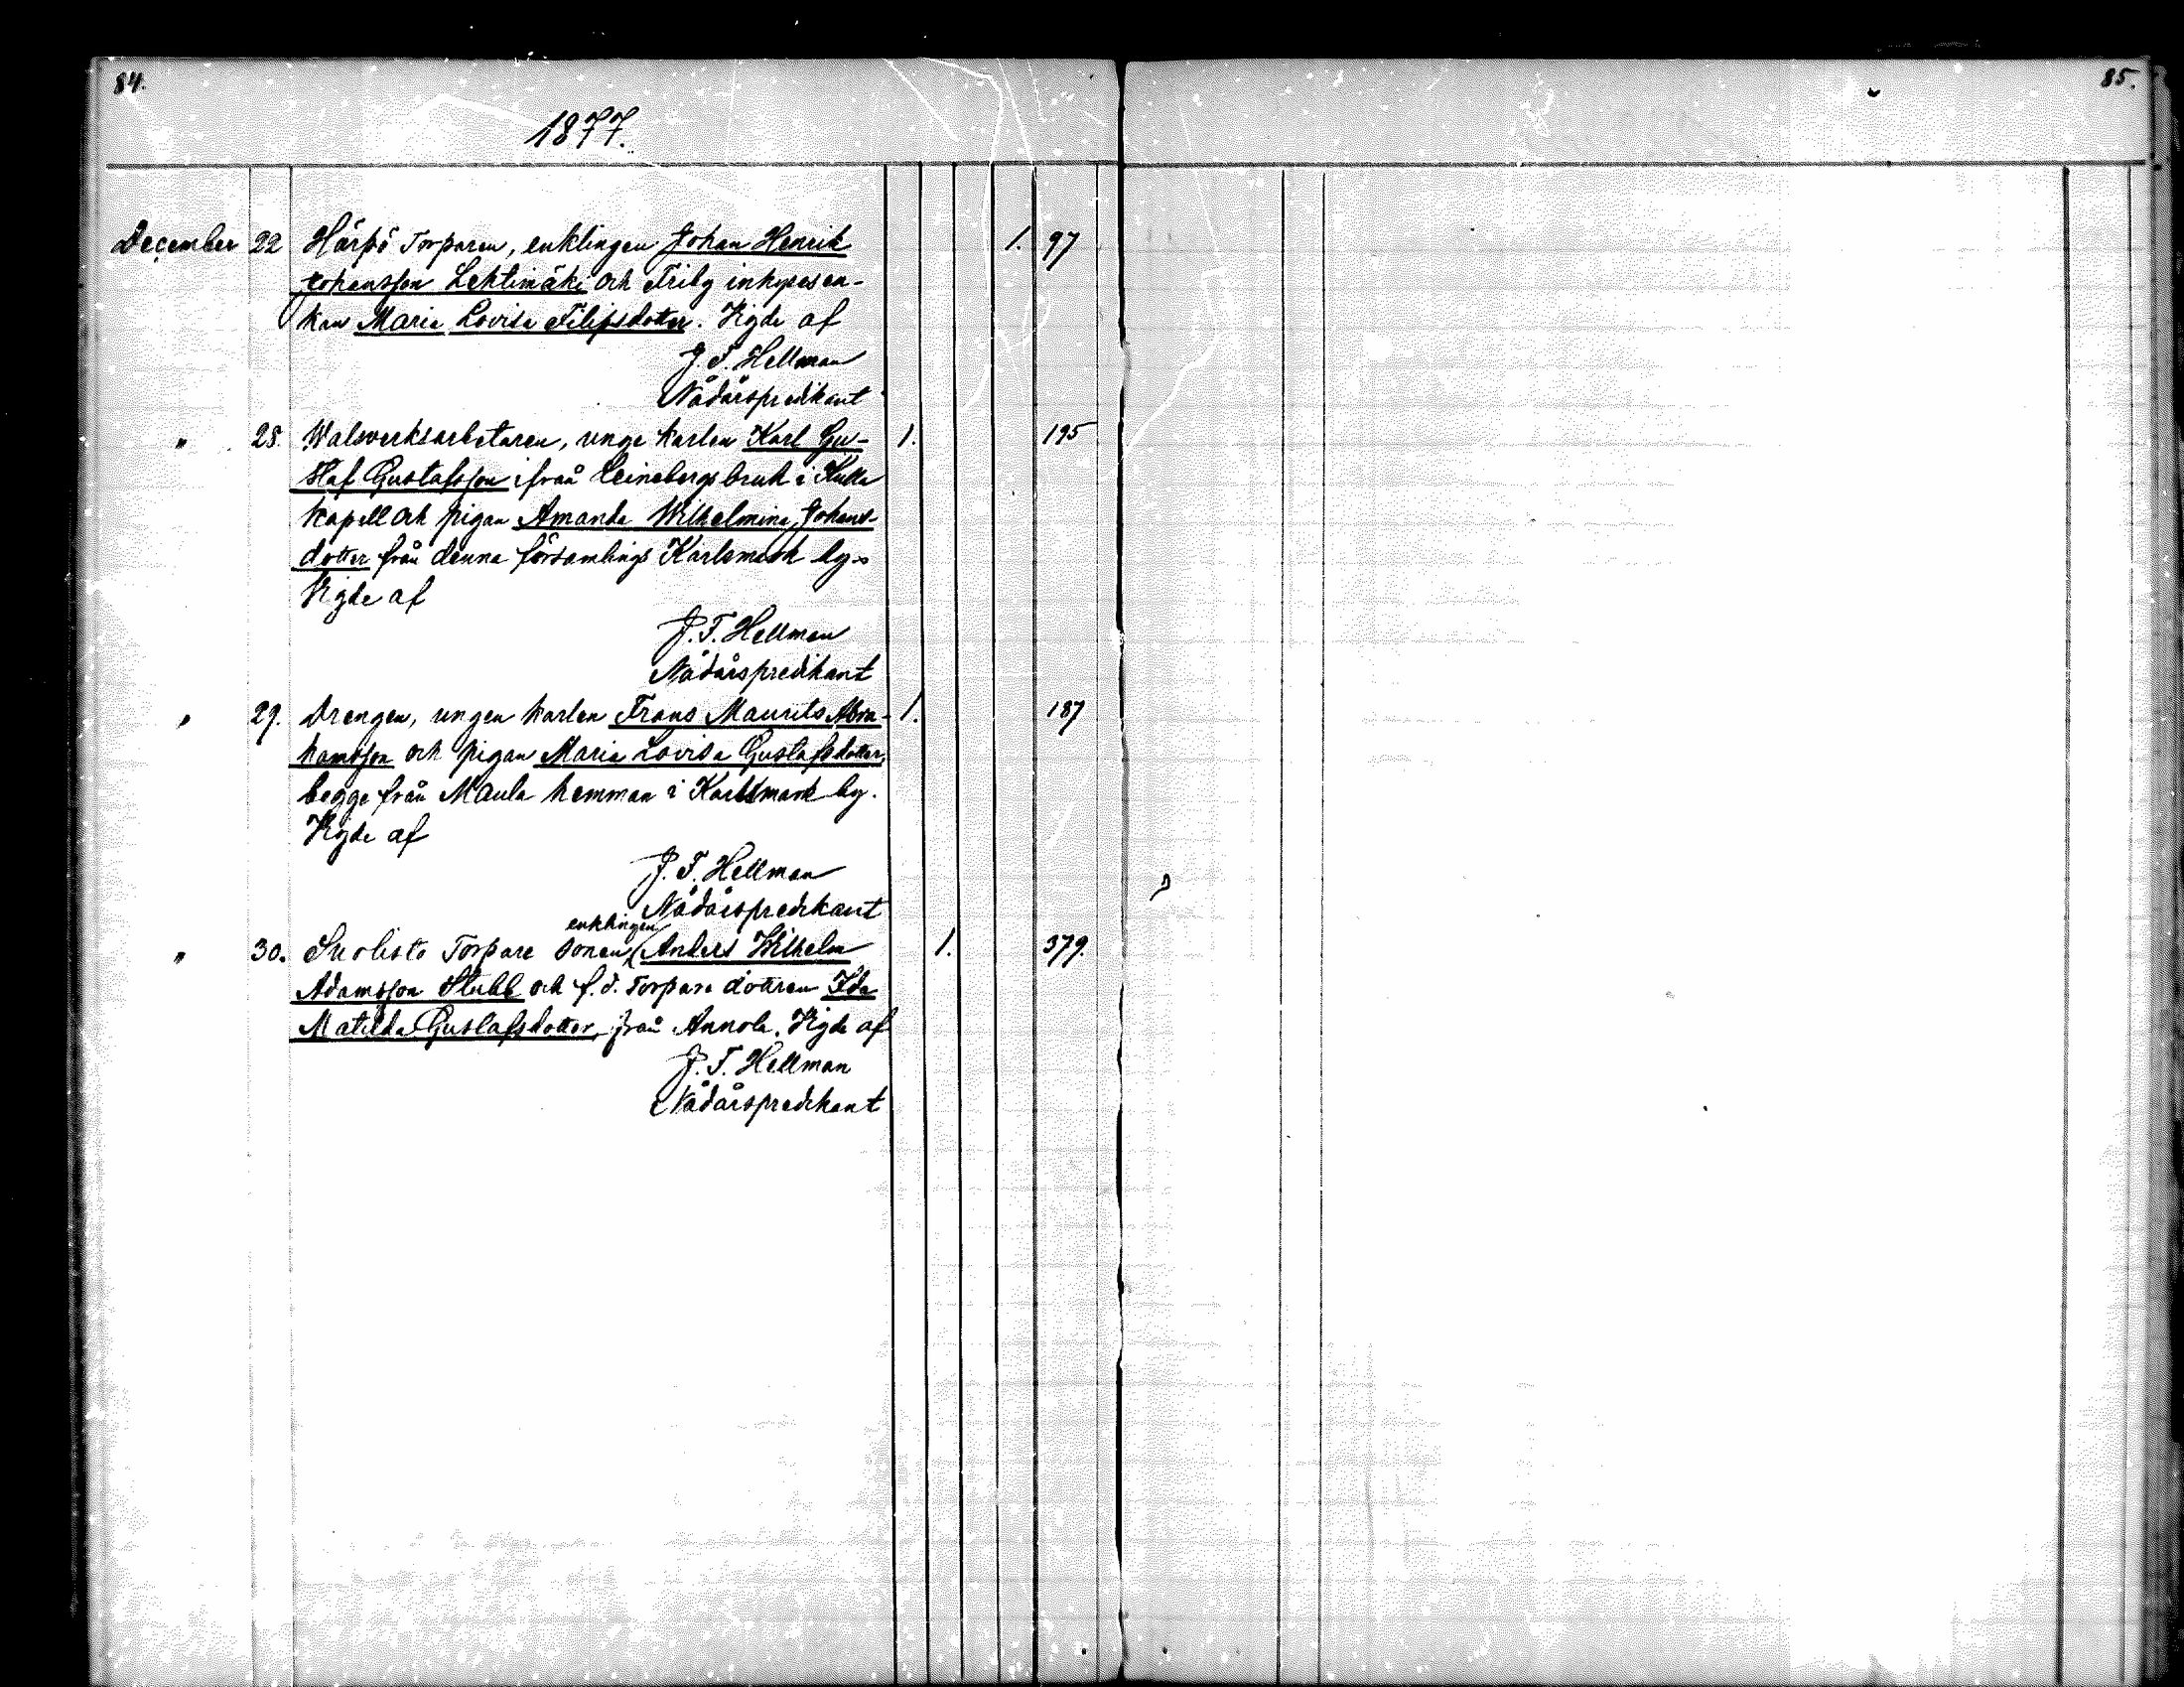 84.
85.
1877.
December 22 Härpö Torparen, enklingen Johan Henrik 1. 97
Johansson Lehtimäki och Friby inhyses en-
kan Maria Lovisa Filipsdotter. Vigde af
J. F. Hellman
Nådårspredikant
" 28. Walsverksarbetaren, unge karlen Karl Gu- 1. 195
staf Gustafsson ifrån Leinebergs bruk i Kulla
kapell och pigan Amanda Wilhelmina Johans-
dotter från denna församlings Karlsmark by.
Vigde af
J. F. Hellman
Nådårspredikant
" 29. Drengen, ungen karlen Frans Maurits Abra- 1. 187
hamsson och pigan Maria Lovisa Gustafsdotter,
begge från Maula hemman i Karlsmark by.
Vigde af
J. F. Hellman
Nådårspredikant
enklingen
" 30. Suolisto Torpare sonen Anders Wilhelm 1. 379.
Adamsson Stubb och f. d. Torpare dottren Ida
Matilda Gustafsdotter, från Annola. Vigde af
J. F. Hellman
Nådårspredikant